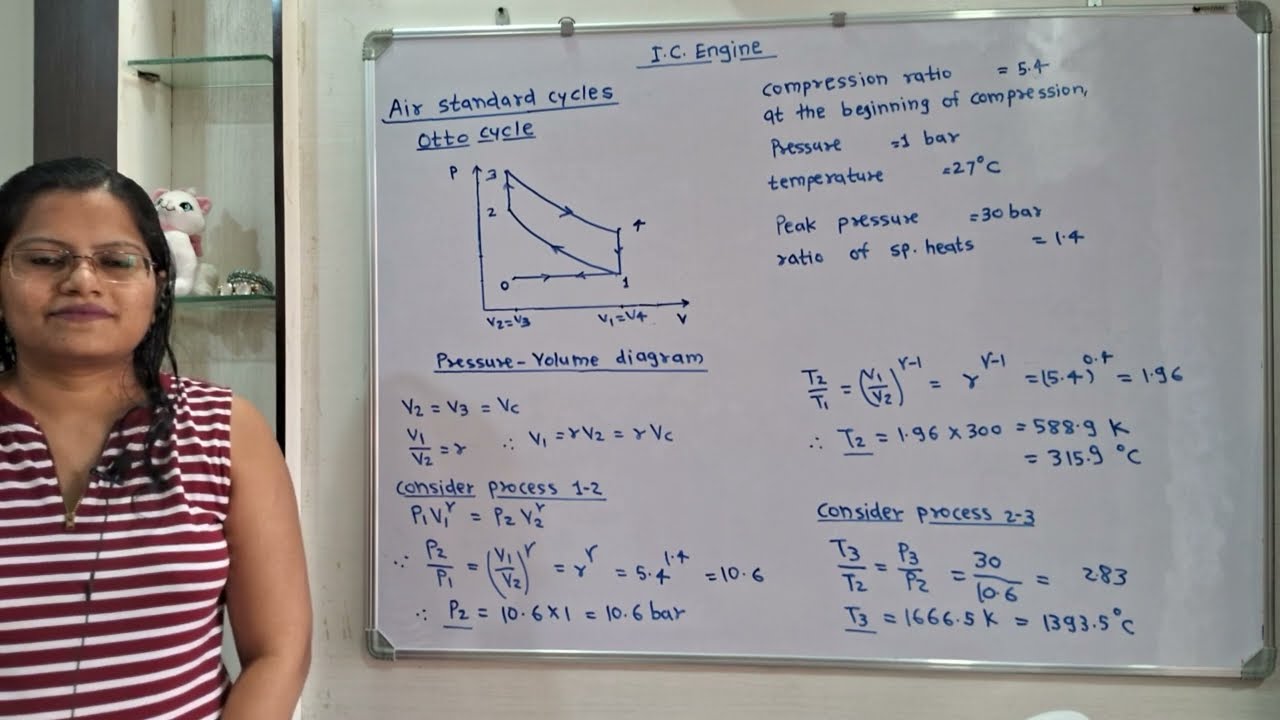 I.C. Engine
Air standard cycles
Otto cycle
P
3
2
4
0
1
V2=V3
V1=V4
V
Pressure-Volume diagram
V2 = V3 = Vc
V1/V2 = r ∴ V1 = rV2 = rVc
Consider process 1-2
P1V1^γ = P2V2^γ
∵ P2/P1 = (V1/V2)^γ = r^γ = 5.4^1.4 = 10.6
∴ P2 = 10.6×1 = 10.6 bar
Compression ratio = 5.4
at the beginning of compression,
Pressure =1 bar
temperature =27°C
Peak pressure =30 bar
ratio of sp. heats = 1.4
T2/T1 = (V1/V2)^γ-1 = r^γ-1 = (5.4)^0.4 = 1.96
∴ T2 = 1.96 × 300 = 588.9 K
= 315.9 °C
Consider process 2-3
T3/T2 = P3/P2 = 30/10.6 = 283
T3 = 1666.5 K = 1393.5°C